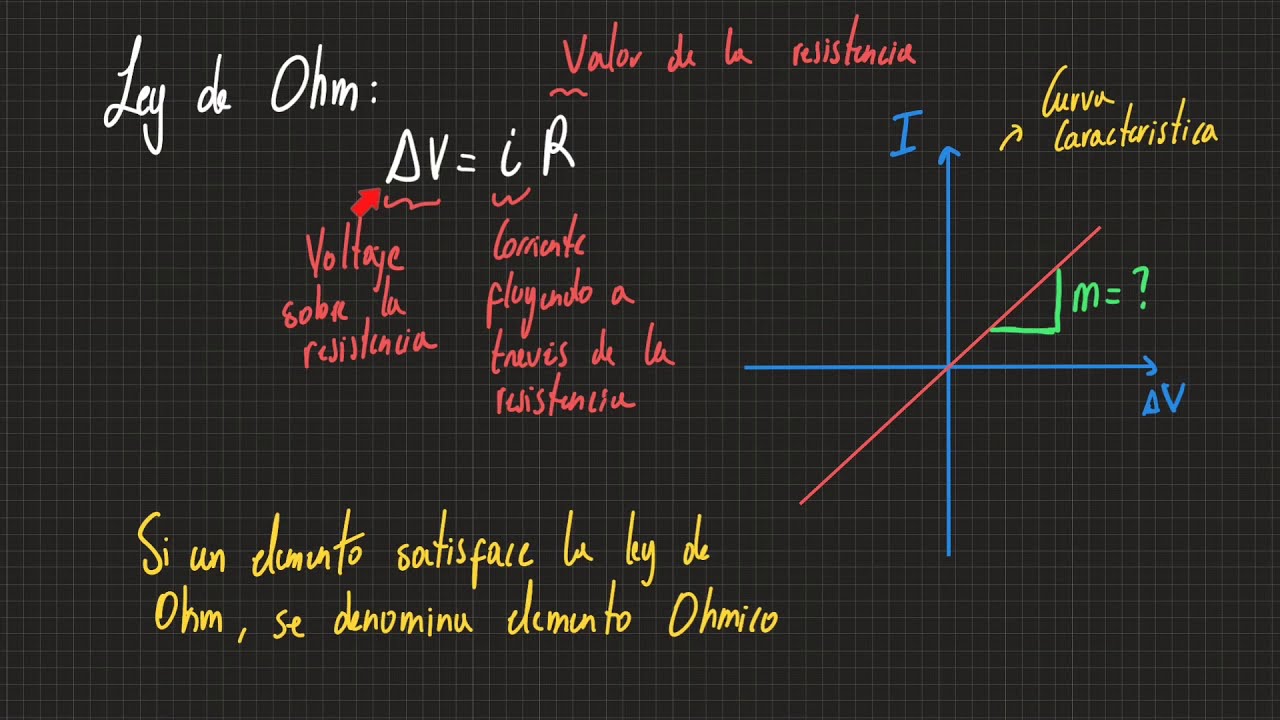 Ley de Ohm:
Valor de la resistencia
ΔV = i R
Voltaje
sobre la
resistencia
Corriente
fluyendo a
través de la
resistencia
I
Curva
Caracteristica
m = ?
ΔV
Si un elemento satisface la ley de
Ohm, se denomina elemento Ohmico